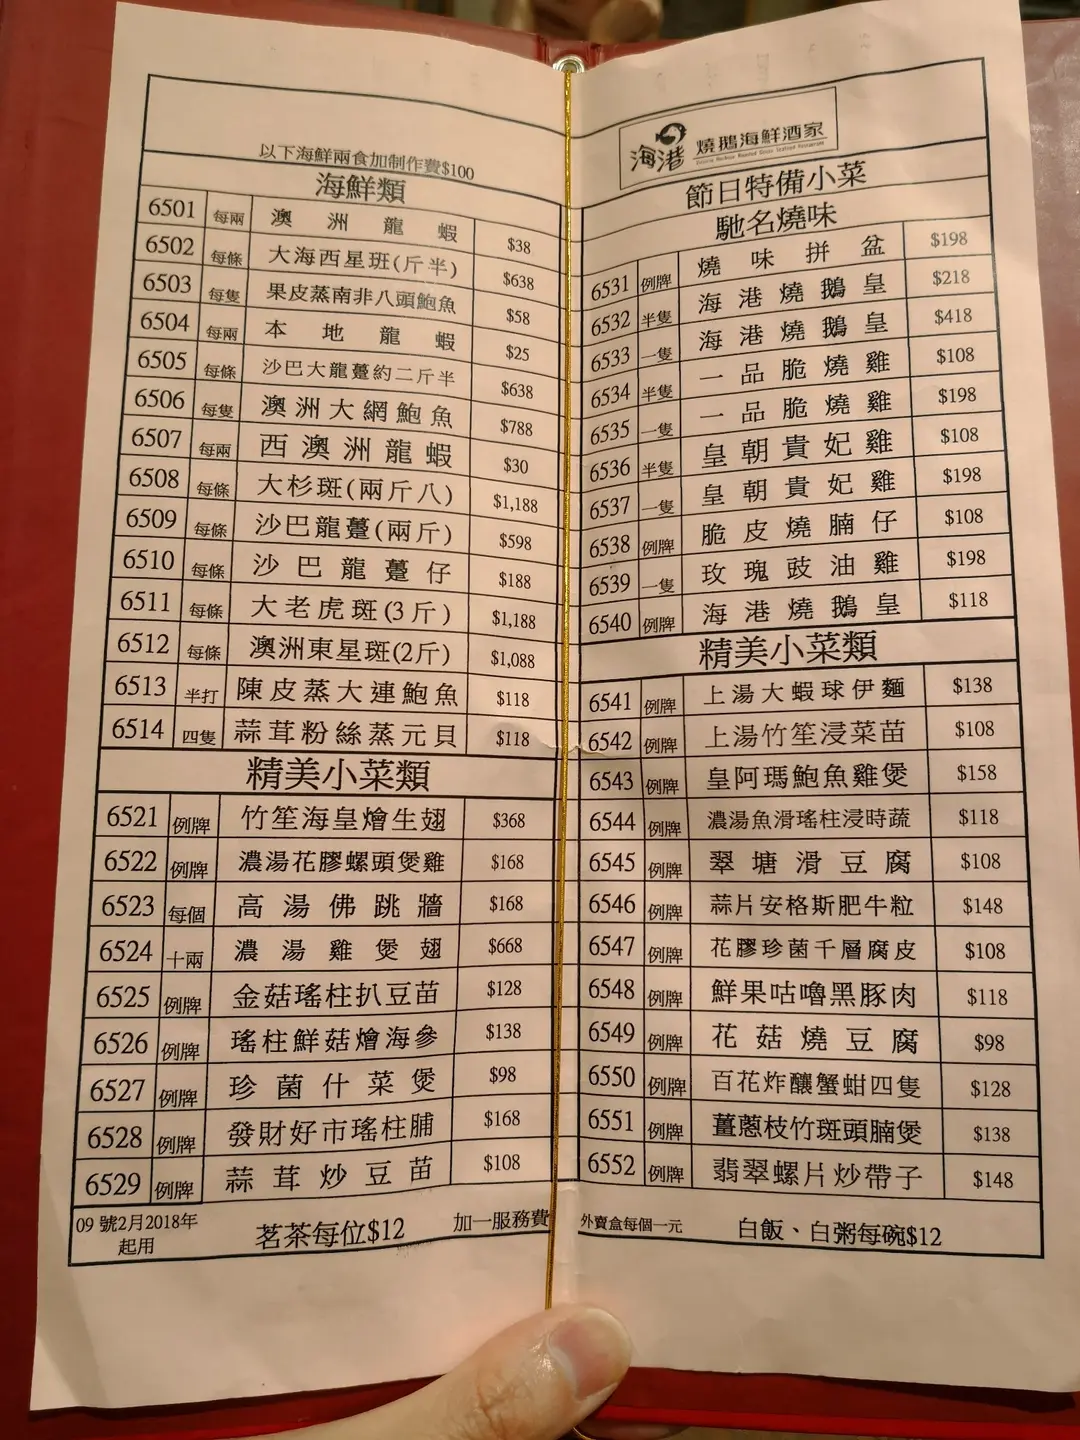 以下海鮮兩食加制作費$100
海鮮類
6501 每兩 澳洲龍蝦 $38
6502 每條 大海西星班(斤半) $638
6503 每隻 果皮蒸南非八頭鮑魚 $58
6504 每兩 本地龍蝦 $25
6505 每條 沙巴大龍躉約二斤半 $638
6506 每隻 澳洲大網鮑魚 $788
6507 每兩 西澳洲龍蝦 $30
6508 每條 大杉斑(兩斤八) $1,188
6509 每條 沙巴龍躉(兩斤) $598
6510 每條 沙巴龍躉仔 $188
6511 每條 大老虎斑(3斤) $1,188
6512 每條 澳洲東星斑(2斤) $1,088
6513 半打 陳皮蒸大連鮑魚 $118
6514 四隻 蒜茸粉絲蒸元貝 $118
精美小菜類
6521 例牌 竹笙海皇燴生翅 $368
6522 例牌 濃湯花膠螺頭煲雞 $168
6523 每個 高湯佛跳牆 $168
6524 十兩 濃湯雞煲翅 $668
6525 例牌 金菇瑤柱扒豆苗 $128
6526 例牌 瑤柱鮮菇燴海參 $138
6527 例牌 珍菌什菜煲 $98
6528 例牌 發財好市瑤柱脯 $168
6529 例牌 蒜茸炒豆苗 $108
09 號2月2018年
起用
茗茶每位$12
加一服務費
海港 燒鵝海鮮酒家
節日特備小菜
馳名燒味
6531 例牌 燒味拼盆 $198
6532 半隻 海港燒鵝皇 $218
6533 一隻 海港燒鵝皇 $418
6534 半隻 一品脆燒雞 $108
6535 一隻 一品脆燒雞 $198
6536 半隻 皇朝貴妃雞 $108
6537 一隻 皇朝貴妃雞 $198
6538 例牌 脆皮燒腩仔 $108
6539 一隻 玫瑰豉油雞 $198
6540 例牌 海港燒鵝皇 $118
精美小菜類
6541 例牌 上湯大蝦球伊麵 $138
6542 例牌 上湯竹笙浸菜苗 $108
6543 例牌 皇阿瑪鮑魚雞煲 $158
6544 例牌 濃湯魚滑瑤柱浸時蔬 $118
6545 例牌 翠塘滑豆腐 $108
6546 例牌 蒜片安格斯肥牛粒 $148
6547 例牌 花膠珍菌千層腐皮 $108
6548 例牌 鮮果咕嚕黑豚肉 $118
6549 例牌 花菇燒豆腐 $98
6550 例牌 百花炸釀蟹蚶四隻 $128
6551 例牌 薑蔥枝竹斑頭腩煲 $138
6552 例牌 翡翠螺片炒帶子 $148
外賣盒每個一元
白飯、白粥每碗$12